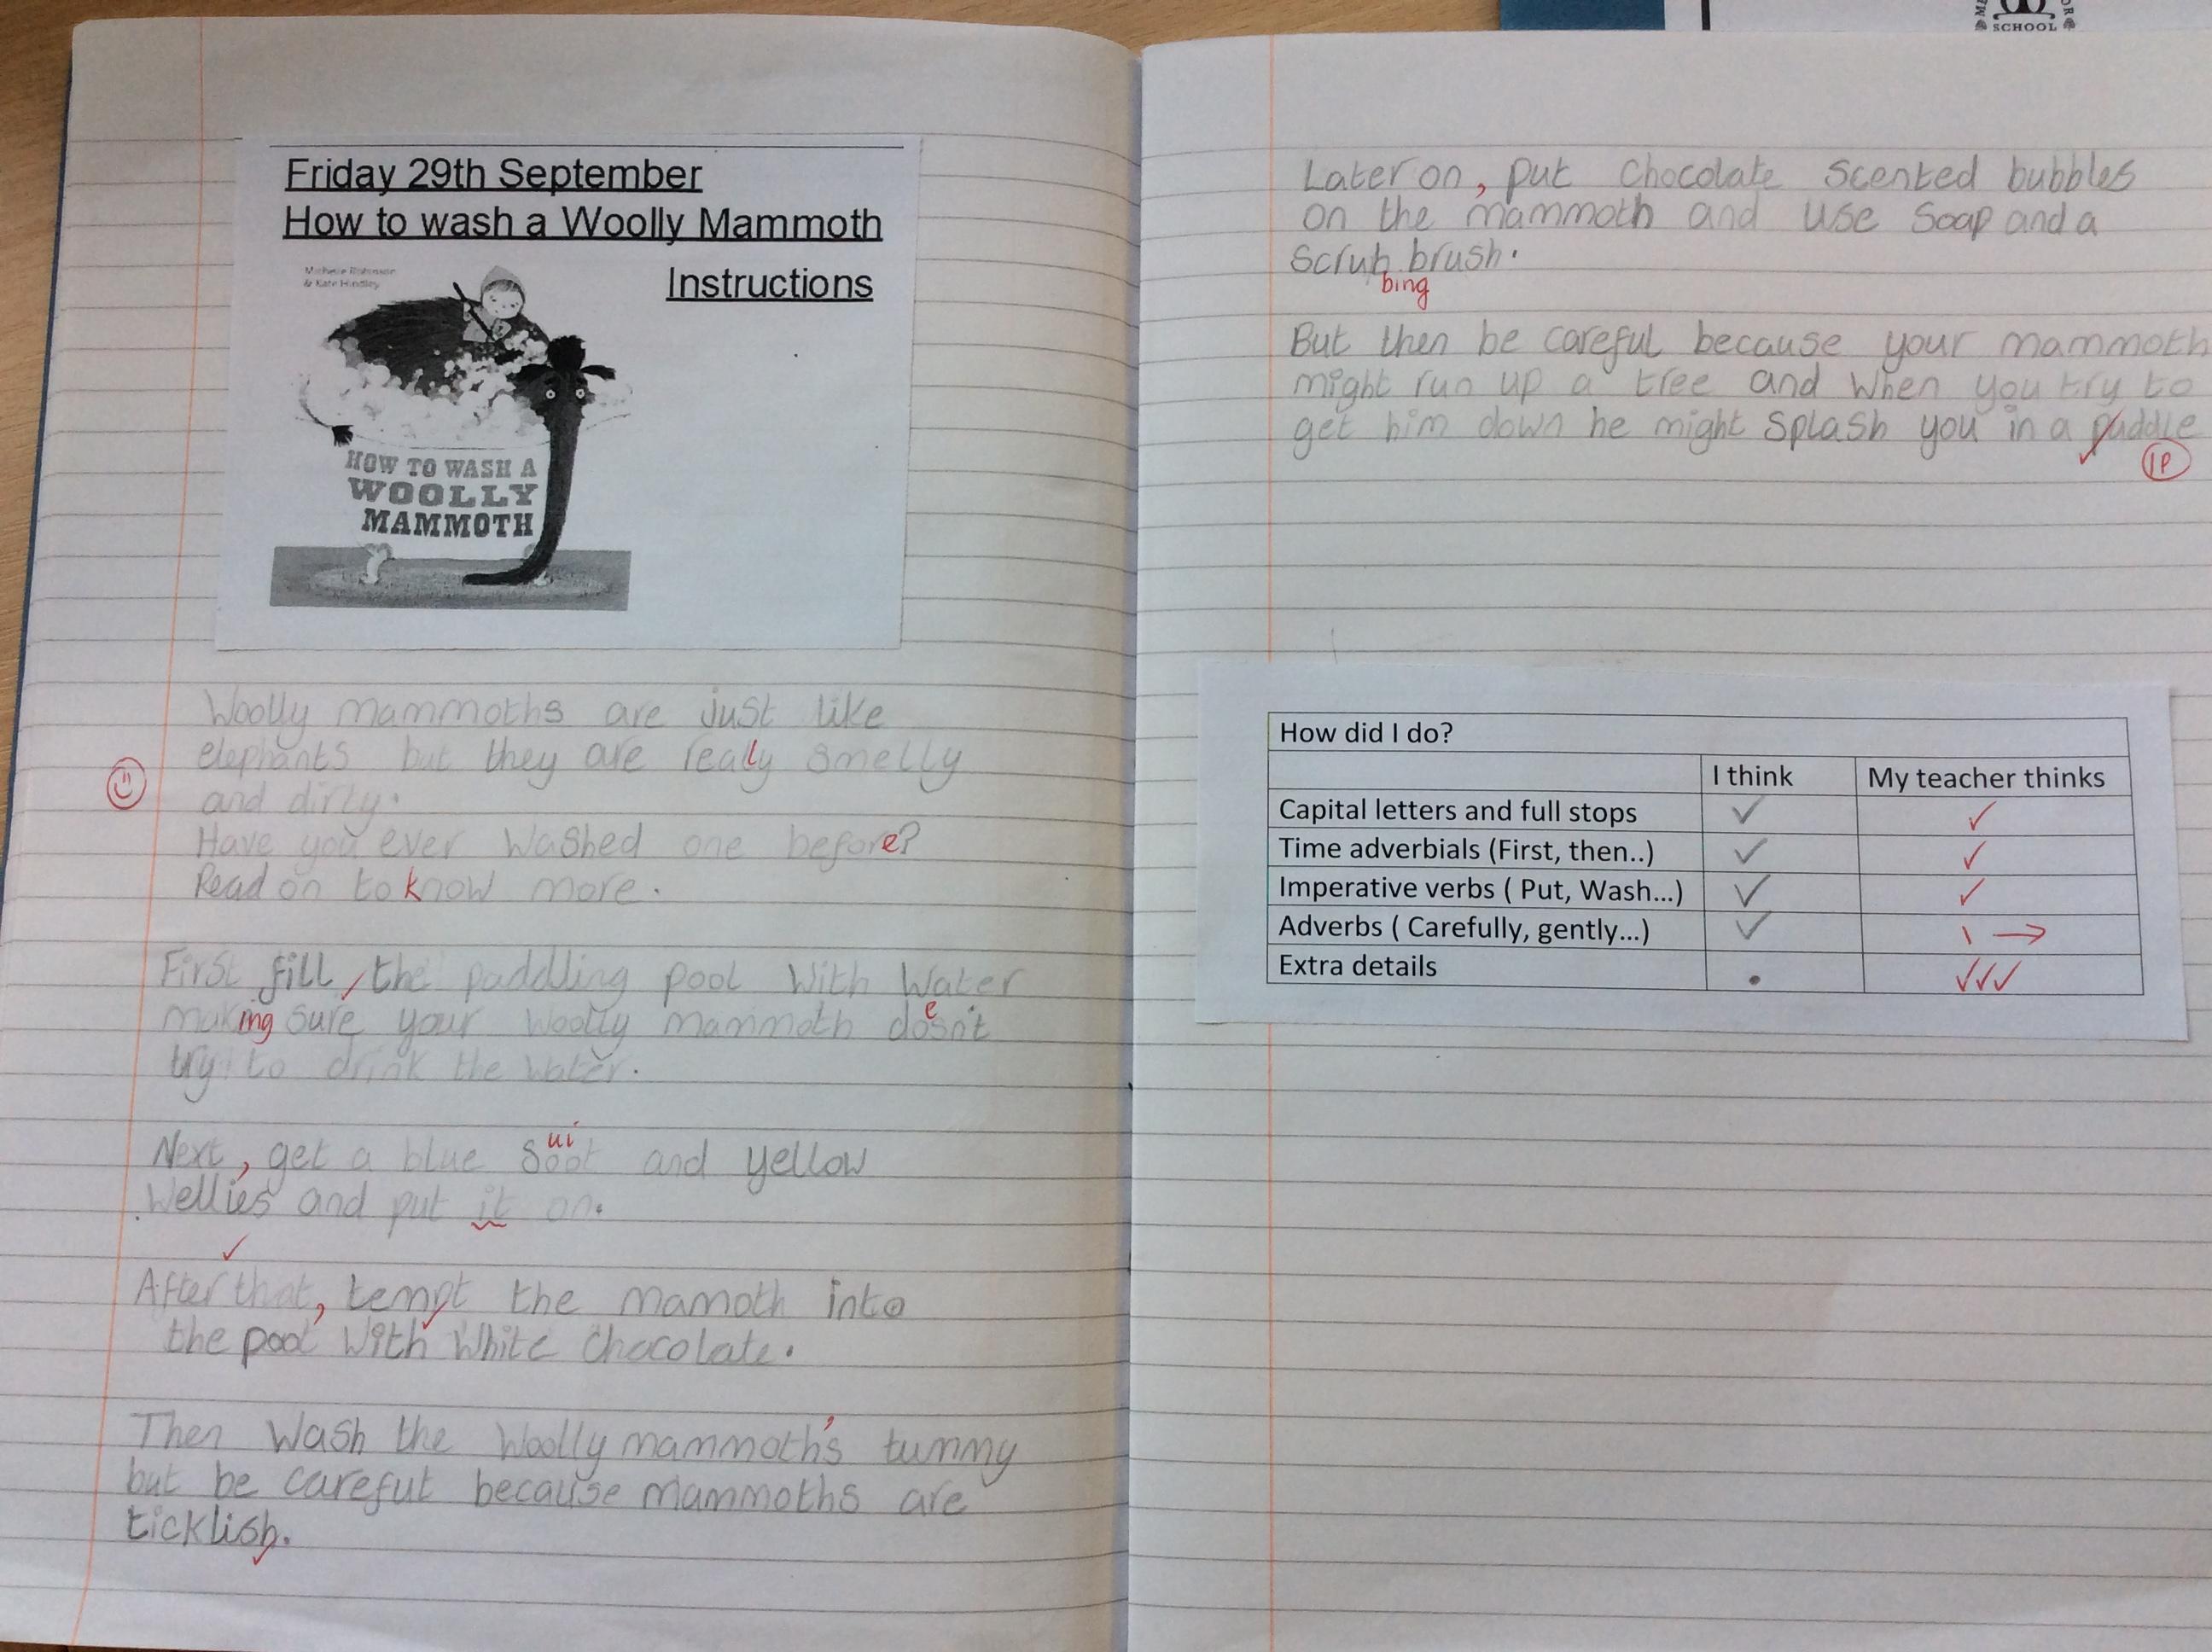 SCHOOL
Friday 29th September
How to wash a Woolly Mammoth
Instructions
Michelle Robinson
& Kate Hindley
HOW TO WASH A
WOOLLY
MAMMOTH
Woolly mammoths are just like
elephants but they are really smelly
and dirty.
Have you ever washed one before?
Read on to know more.
First fill the paddling pool with water
making sure your woolly mammoth doesn't
try to drink the water.
ui
Next, get a blue soot and yellow
wellies and put it on.
After that, tempt the mamoth into
the pool with white chocolate.
Then wash the woolly mammoth's tummy
but be careful because mammoths are
ticklish.
Later on, put chocolate scented bubbles
on the mammoth and use soap and a
scrub brush.
bing
But then be careful because your mammoth
might run up a tree and when you try to
get him down he might splash you in a puddle
IP
How did I do?
I think My teacher thinks
Capital letters and full stops ✓ ✓
Time adverbials (First, then..) ✓ ✓
Imperative verbs ( Put, Wash...) ✓ ✓
Adverbs ( Carefully, gently...) ✓ \ →
Extra details • ✓✓✓